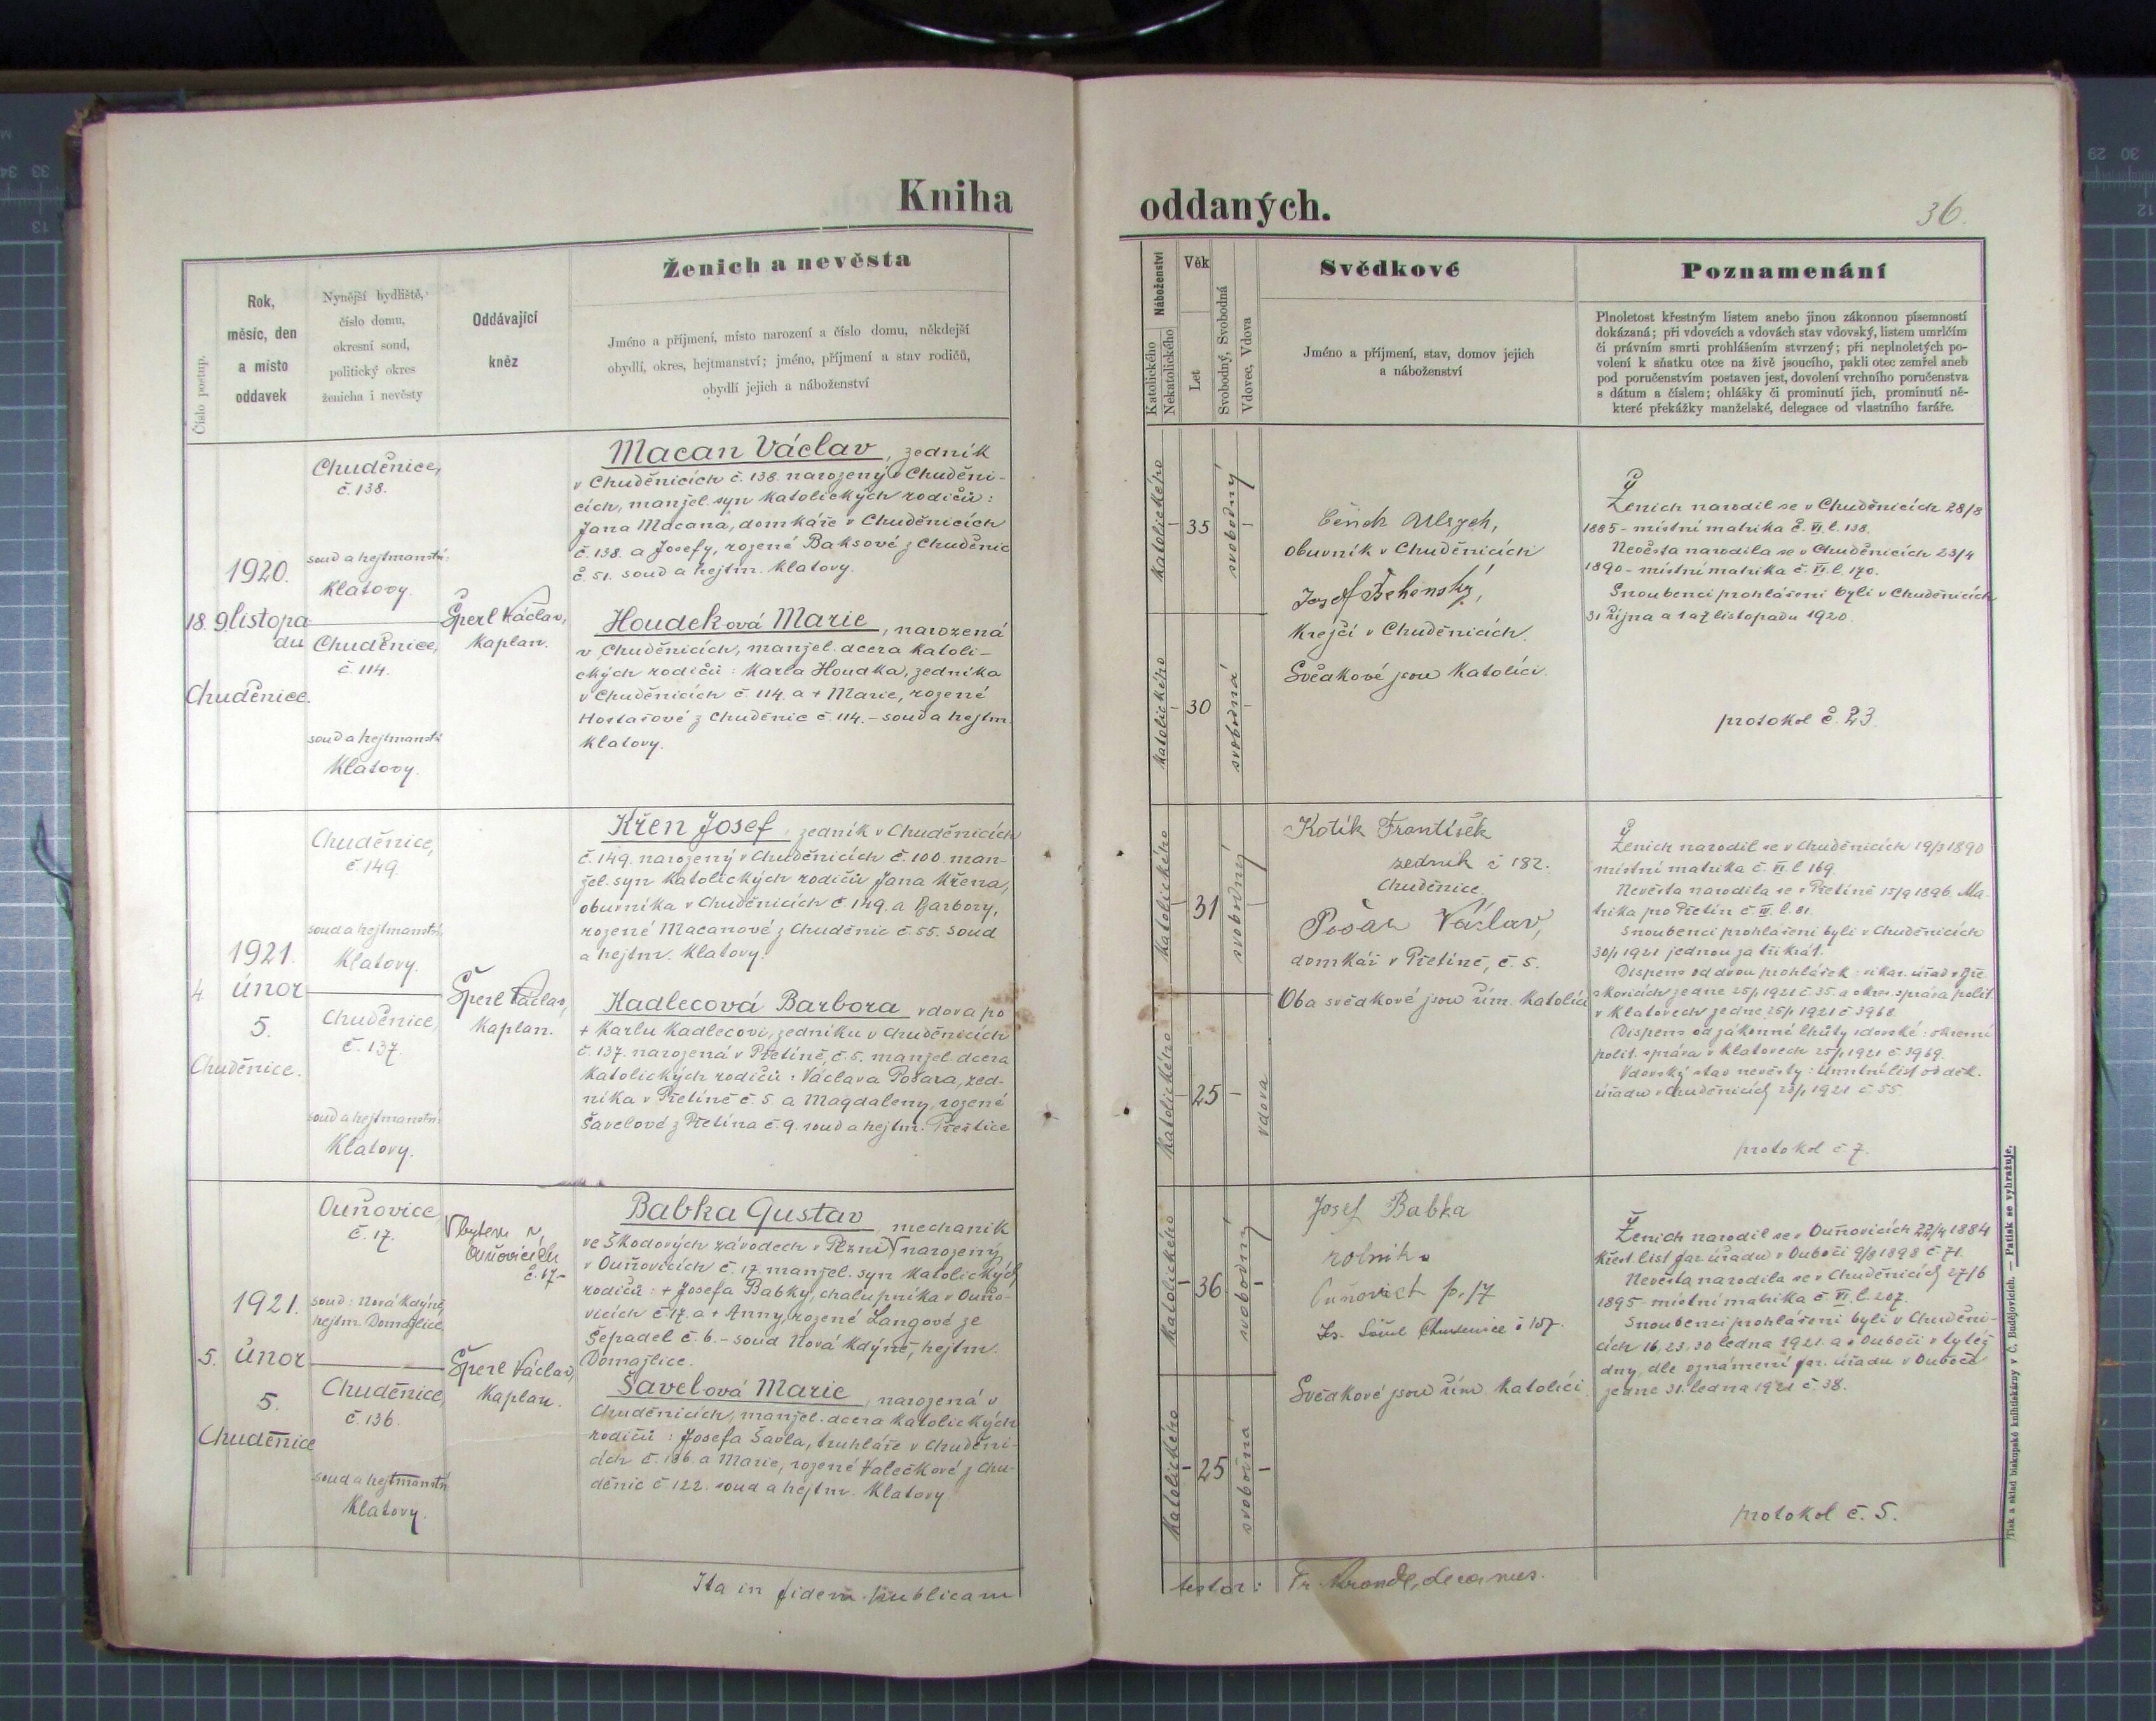 Kniha
Číslo postup.
Rok,
měsíc, den
a místo
oddavek
Nynější bydliště,
číslo domu,
okresní soud,
politický okres
ženicha i nevěsty
Oddávající
kněz
Ženich a nevěsta
Jméno a příjmení, místo narození a číslo domu, někdejší
obydlí, okres, hejtmanství; jméno, příjmení a stav rodičů,
obydlí jejich a náboženství
18.
1920.
9. listopa-
du
Chuděnice.
Chuděnice,
č. 138.
soud a hejtmanství:
Klatovy.
Chuděnice,
č. 114.
soud a hejtmanství
Klatovy.
Šperl Václav,
kaplan.
Macan Václav, zedník
v Chuděnicích č. 138. narozený v Chuděni-
cích, manžel. syn katolických rodičů:
Jana Macana, domkáře v Chuděnicích
č. 138. a Josefy, rozené Baksové z Chuděnic
č. 51. soud a hejtm. Klatovy.
Houdeková Marie, narozená
v Chuděnicích, manžel. dcera katoli-
ckých rodičů: Karla Houdka, zedníka
v Chuděnicích č. 114. a + Marie, rozené
z Chuděnic č. 114. – soud a hejtm.
Klatovy.
4.
1921.
únor
5.
Chuděnice.
Chuděnice,
č. 149.
soud a hejtmanství:
Klatovy.
Chuděnice,
č. 137.
soud a hejtmanství:
Klatovy.
Šperl Václav,
kaplan.
Křen Josef, zedník v Chuděnicích
č. 149. narozený v Chuděnicích č. 100. man-
žel. syn katolických rodičů Jana Křena,
obuvníka v Chuděnicích č. 149. a Barbory,
rozené Macanové z Chuděnic č. 55. soud
a hejtm. Klatovy.
Kadlecová Barbora vdova po
+ Karlu Kadlecovi, zedníku v Chuděnicích
č. 137. narozená v Přetíně, č. 5. manžel. dcera
katolických rodičů: Václava Pošara, zed-
níka v Přetíně č. 5. a Magdaleny, rozené
Šavelové z Přetína č. 9. soud a hejtm. Přeštice
5.
1921.
únor
5.
Chuděnice
Ouňovice
č. 17.
soud: Nová Kdyně,
hejtm. Domažlice.
Chuděnice,
č. 136.
soud a hejtmanství
Klatovy.
V bytem v
Ouňovicích
č. 17 –
Šperl Václav,
kaplan.
Babka Gustav mechanik
ve Škodových závodech v Plzni V narozený
v Ouňovicích č. 17. manžel. syn katolických
rodičů: + Josefa Babky, chalupníka v Ouňo-
vicích č. 17. a + Anny, rozené Langové ze
Šepadel č. 6. – soud Nová Kdyně, hejtm.
Domažlice.
Šavelová Marie, narozená v
Chuděnicích, manžel. dcera katolických
rodičů: Josefa Šavla, truhláře v Chuděni-
cích č. 136. a Marie, rozené Valečkové z Chu-
děnic č. 122. soud a hejtm. Klatovy
Ita in fidem publicam
oddaných.
36.
Náboženství
Katolického
Nekatolického
Věk
Let
Svobodný, Svobodná
Vdovec, Vdova
Svědkové
Jméno a příjmení, stav, domov jejich
a náboženství
Poznamenání
Plnoletost křestným listem anebo jinou zákonnou písemností
dokázaná; při vdovcích a vdovách stav vdovský, listem umrlčím
či právním smrti prohlášením stvrzený; při neplnoletých po-
volení k sňatku otce na živě jsoucího, pakli otec zemřel aneb
pod poručenstvím postaven jest, dovolení vrchního poručenstva
s dátum a číslem; ohlášky či prominutí jich, prominutí ně-
které překážky manželské, delegace od vlastního faráře.
katolického
35
svobodný
katolického
30
svobodná
Čeněk
obuvník v Chuděnicích
Josef
krejčí v Chuděnicích.
Svědkové jsou katolíci.
Ženich narodil se v Chuděnicích 28/8
1885 – místní matrika č. VI. l. 138.
Nevěsta narodila se v Chuděnicích 23/4
1890 – místní matrika č. VI. l. 170.
Snoubenci prohlášeni byli v Chuděnicích
31 října a 1 a 7 listopadu 1920.
protokol č. 23.
katolického
31
svobodný
katolického
25
vdova
Kotík František
zedník č 182.
Chuděnice.
Pošar Václav,
domkář v Přetíně, č. 5.
Oba svědkové jsou řím. katolíci
Ženich narodil se v Chuděnicích 19/3 1890
místní matrika č. VI. l. 169.
Nevěsta narodila se v Přetíně 15/9 1896 Ma-
trika pro Přetín č. III. l. 81.
Snoubenci prohlášeni byli v Chuděnicích
30/1 1921 jednou za třikrát.
Dispens od dvou prohlášek: vikar. úřad v
jedne 25/1 1921 č. 35. a okres. správa polit.
v Klatovech jedne 25/1 1921 č 3968.
Dispens od zákonné lhůty vdovské: okresní
polit. správa v Klatovech 25/1 1921 č. 3969.
Vdovský stav nevěsty: Úmrtní list od děk.
úřadu v Chuděnicích 23/1 1921 č 55
protokol č 7.
katolického
36
svobodný
katolického
25
svobodná
Josef Babka
rolník
p. 17
Chudenice č 107.
Svědkové jsou řím. katolíci.
Ženich narodil se v Ouňovicích 22/4 1884
křest. list far. úřadu v Oubočí 9/8 1898 č. 71.
Nevěsta narodila se v Chuděnicích 27/6
1895 – místní matrika č VI. l. 207.
Snoubenci prohlášeni byli v Chuděni-
cích 16, 23, 30 ledna 1921. a v Oubočí v tytéž
dny, dle oznámení far. úřadu v Oubočí
jedne 31. ledna 1921 č. 38.
protokol č. 5.
testor: Fr. decanus.
Tisk a sklad biskupské knihtiskárny v Č. Budějovicích. — Patisk se vyhražuje.